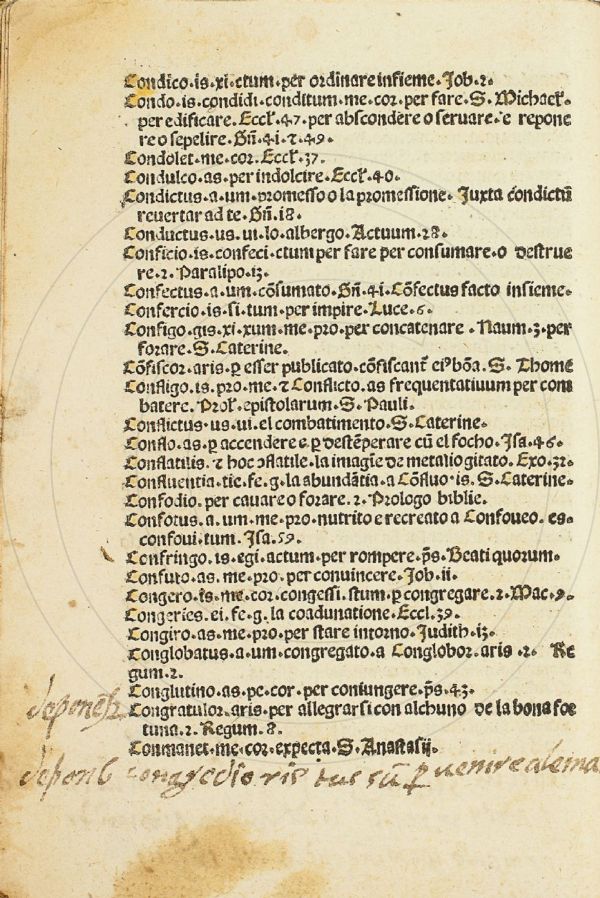 Condico.is.xi.ctum.per ordinare insieme.Job.2.
Condo.is.condidi.conditum.me.cor.per fare.S.Michael̄.
per edificare.Eccl̄.47.per abscondere o seruare.e repone
re o sepelire.Gn̄.41.⁊.49.
Condolet.me.cor.Eccl̄.37.
Condulco.as.per indolcire.Eccl̄.40.
Condictus.a.um.promesso o la promessione.Juxta cōdictū
reuertar ad te.Gn̄.18.
Conductus.us.ui.lo albergo.Actuum.28.
Conficio.is.confeci.ctum per fare per consumare.o destrue
re.2.Paralipo.13.
Confectus.a.um.cōsumato.Gn̄.41.Cōfectus facto insieme.
Confercio.is.si.tum.per impire.Luce.6.
Configo.gis.xi.xum.me.pro.per concatenare.Naum.3.per
forare.S.Caterine.
Cōfiscor.aris.ꝑ esser publicato.cōfiscant̄ eiꝰ bōa.S.Thome
Confligo.is.pro.me.⁊ Conflicto.as frequentatiuum per com
batere.Prol̄.epistolarum.S.Pauli.
Conflictus.us.ui.el combatimento.S.Caterine.
Conflo.as.ꝑ accendere e.ꝑ destēperare cū el focho.Isa.46.
Conflatilis.⁊ hoc ↄflatile.la imagīe de metallo gitato.Exo.32.
Confluentia.tie.fe.g.la abundātia a Cōfluo.is.S.Caterine.
Confodio.per cauare o forare.2.Prologo biblie.
Confotus.a.um.me.pro.nutrito e recreato a Confoueo.es.
confoui.tum.Isa.59.
Confringo.is.egi.actum.per rompere.p̄s.Beati quorum.
Confuto.as.me.pro.per conuincere.Job.ii.
Congero.is.me.cor.congessi.stum.ꝑ congregare.2.Mac.9.
Congeries.ei.fe.g.la coadunatione.Eccl.39.
Congiro.as.me.pro.per stare intorno.Judith.13.
Conglobatus.a.um.congregato a Conglobor.aris.2.Re
gum.2.
Conglutino.as.pe.cor.per coniungere.p̄s.43.
Congratulor.aris.per allegrarsi con alchuno de la bona for
tuna.2.Regum.8.
Conmanet.me.cor.expecta.S.Anastasii.
congredior ris